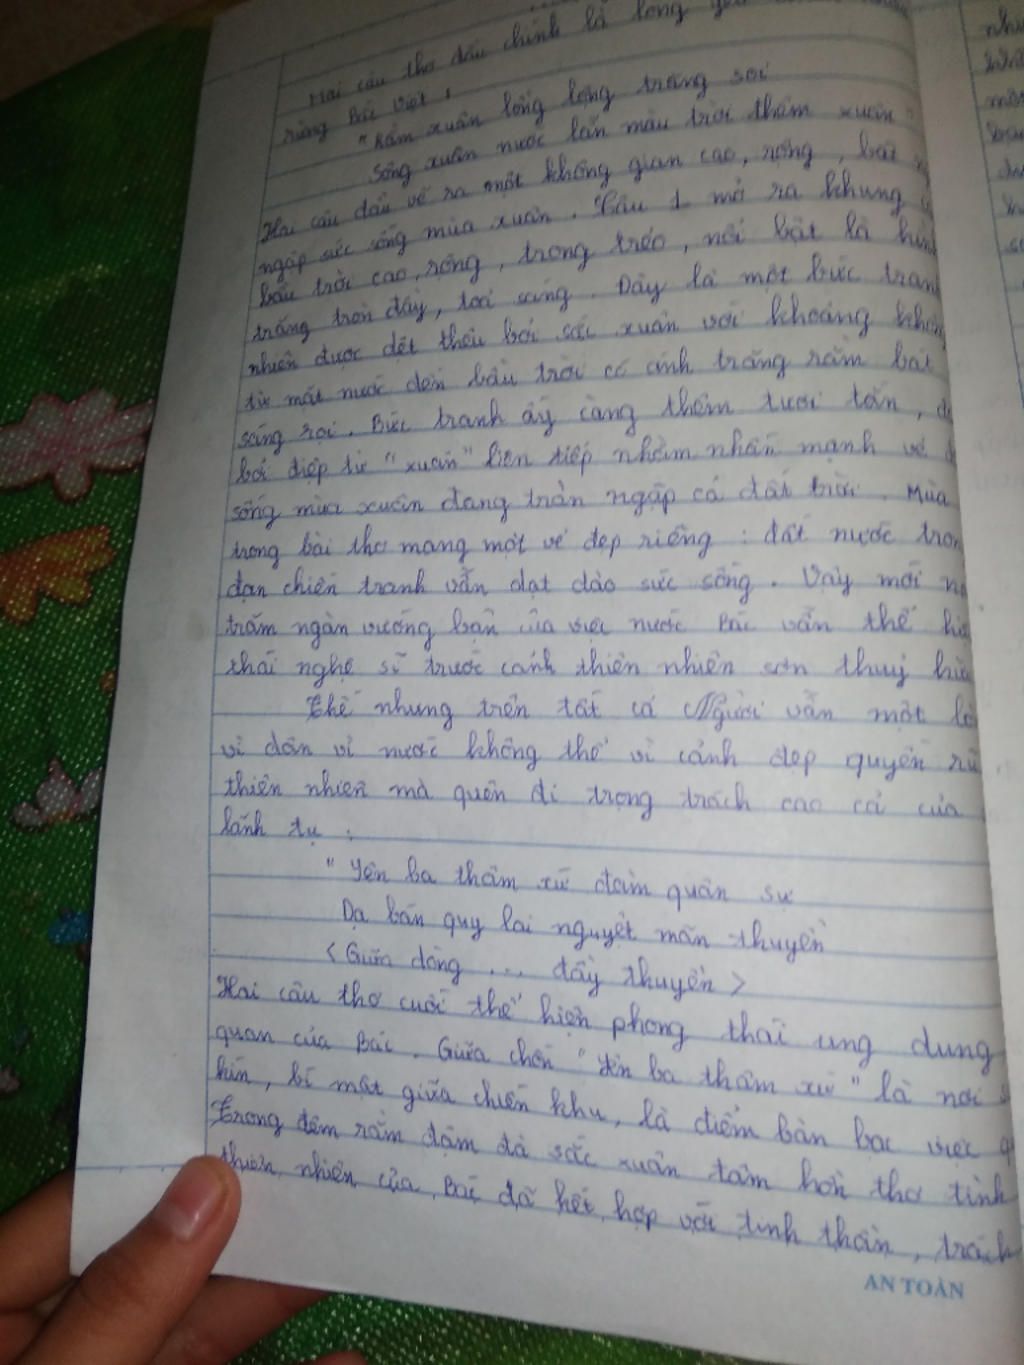 Hai câu thơ đầu chính là lòng yêu
rừng Bắc Việt :
"Rằm xuân lồng lộng trăng soi
Sông xuân nước lẫn màu trời thêm xuân"
Hai câu đầu vẽ ra một không gian cao, rộng, bát
ngập sức sống mùa xuân. Câu 1 mở ra khung
bầu trời cao, rộng, trong trẻo, nổi bật là
trăng tròn đầy, toả sáng. Đây là một bức tranh
nhiên được dệt thêu bởi sắc xuân với khoảng
từ mặt nước đến bầu trời có ánh trăng rằm bát
sáng rọi. Bức tranh ấy càng thêm tươi tắn,
bởi điệp từ "xuân" liên tiếp nhằm nhấn mạnh vẻ
sống mùa xuân đang tràn ngập cả đất trời. Mùa
trong bài thơ mang một vẻ đẹp riêng : đất nước
đạn chiến tranh vẫn dạt dào sức sống. Vậy mới
trăm ngàn vướng bận của việc nước Bác vẫn thể
thái nghệ sĩ trước cảnh thiên nhiên sơn thuỷ
Thế nhưng trên tất cả Người vẫn một
vì dân vì nước không thể vì cảnh đẹp quyến
thiên nhiên mà quên đi trọng trách cao cả của
lãnh tụ :
"Yên ba thâm xứ đàm quân sự
Dạ bán quy lai nguyệt mãn thuyền"
<Giữa dòng ... đầy thuyền>
Hai câu thơ cuối thể hiện phong thái ung dung
quan của Bác. Giữa chốn "Yên ba thâm xứ" là nơi
kín, bí mật giữa chiến khu, là điểm bàn bạc việc
Trong đêm rằm đậm đà sắc xuân tâm hồn thơ tình
thiên nhiên của Bác đã kết hợp với tinh thần, trách
AN TOÀN